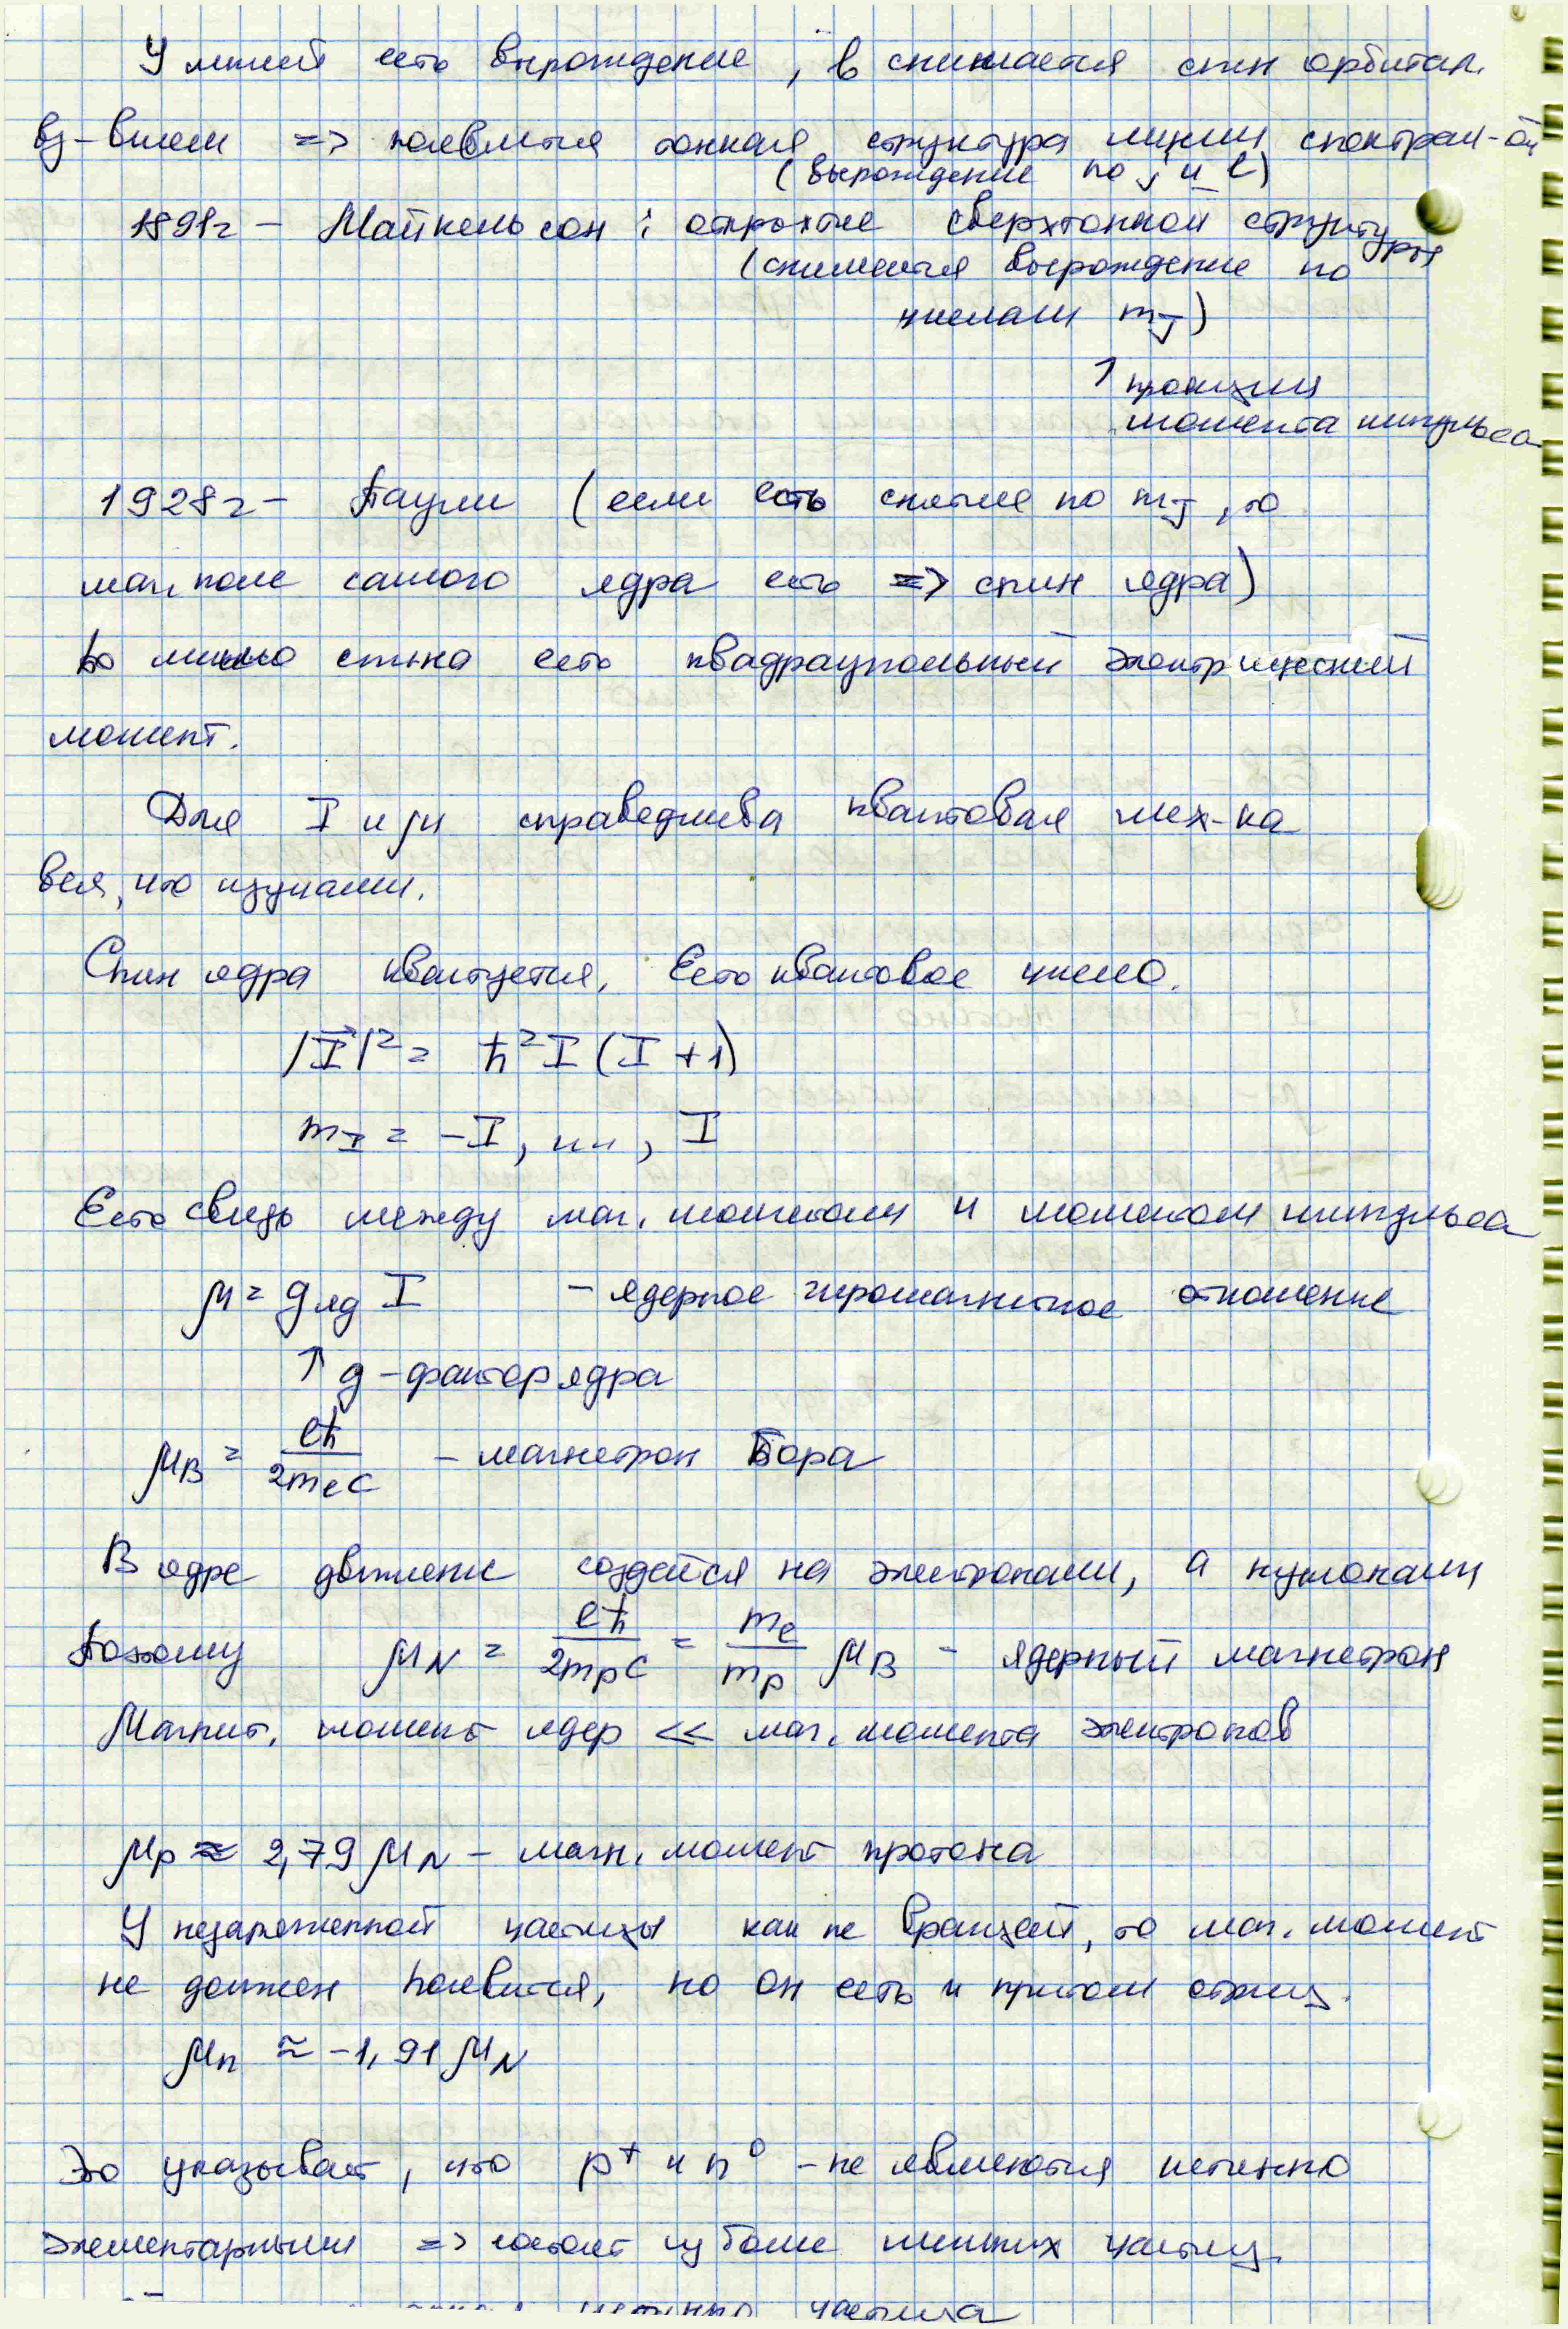 У линий есть вырождение, в снимается спин орбитал.
вз-вием => появляется тонкая структура линии спектрал-ой
(вырождение по j и l)
1891г - Майкельсон : открытие сверхтонкой структуры
(снимается вырождение по
числам m_J)
↑ проекция
момента импульса
1928г - Паули (если есть снятие по m_J, то
маг. поле самого ядра есть => спин ядра)
помимо спина есть квадраупольный электрический
момент.
Для I и μ справедлива квантовая мех-ка
вся, что изучали.
Спин ядра квантуется. Есто квантовое число.
|I⃗|² = ħ²I(I+1)
m_I = -I, ..., I
Есть связь между маг. моментом и моментом импульса
μ = g_яд I - ядерное гиромагнитное отношение
↑ g-фактор ядра
μ_B = eħ/2m_e c - магнетрон Бора
В ядре движение создаётся на электронами, а нуклонами
Поэтому μ_N = eħ/2m_p c = m_e/m_p μ_B - ядерный магнетрон
Магнит. момент ядер << маг. момента электронов
μ_p ≈ 2,79 μ_N - магн. момент протона
У незаряженной частицы как не вращай, то маг. момент
не должен появится, но он есть и притом отриц.
μ_n ≈ -1,91 μ_N
Это указывает, что p⁺ и n⁰ - не являются истинно
элементарными => состоят из более мелких частиц.
истинно частица